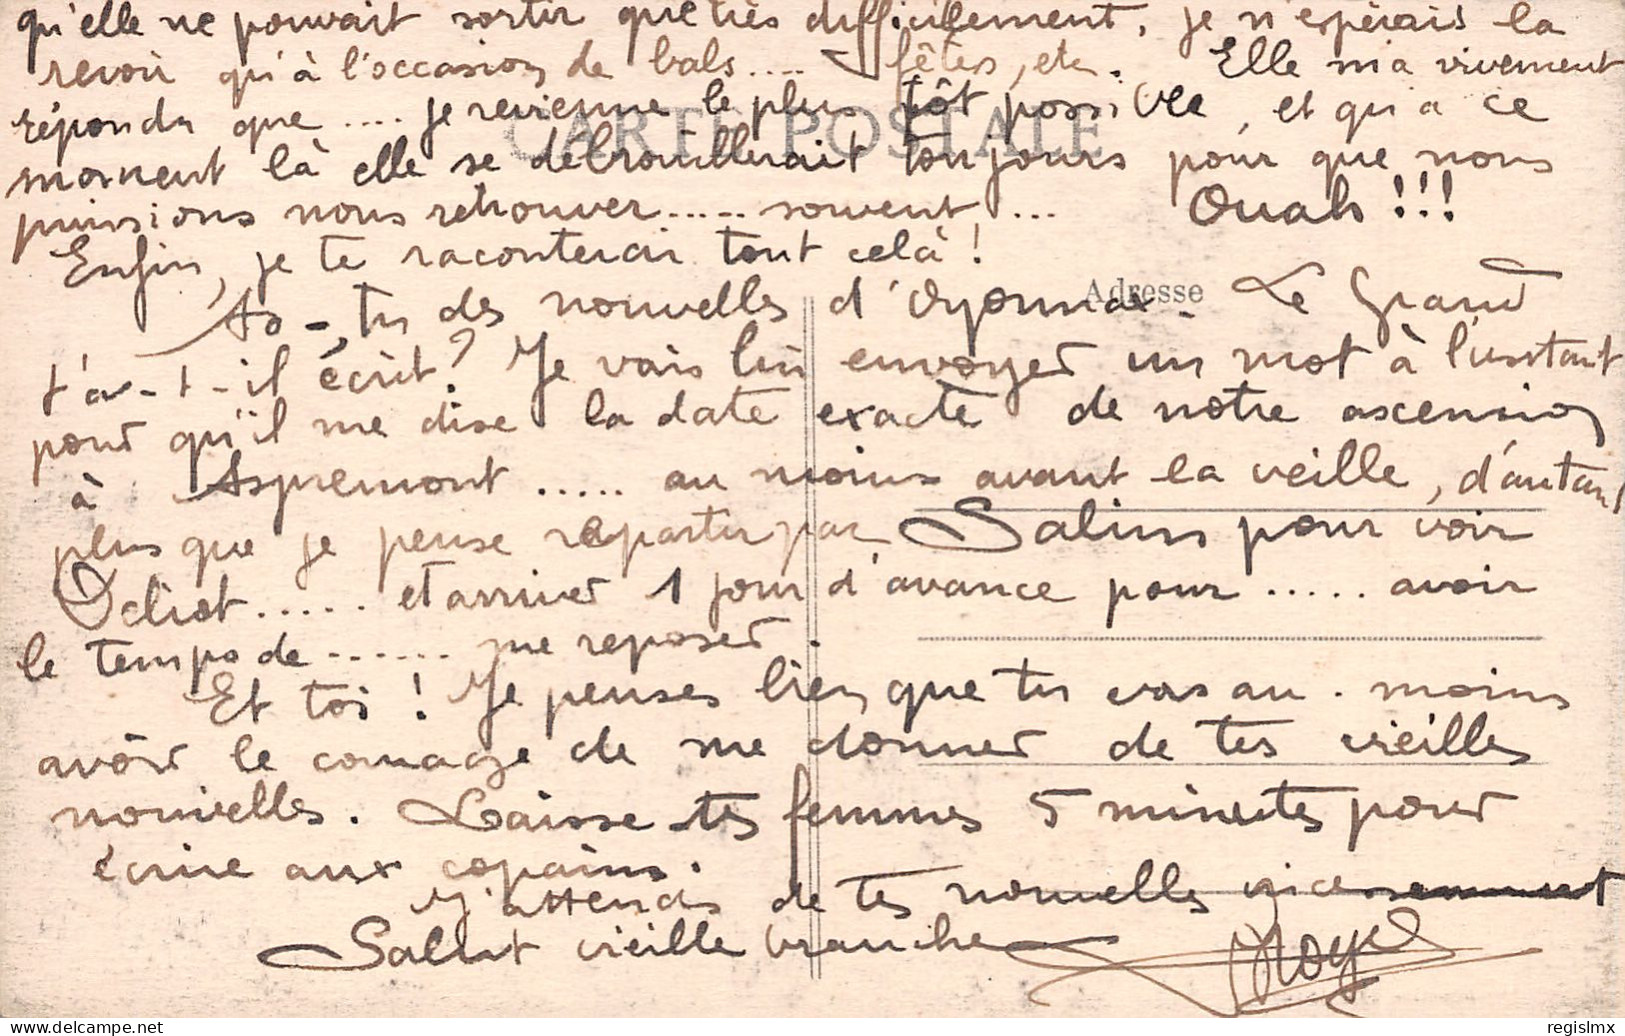 qu'elle ne pouvait sortir que très difficilement, je n'espérais la
revoir qu'à l'occasion de bals.... fêtes, etc. Elle m'a vivement
répondu que .... je revienne le plus tôt possible, et qu'à ce
CARTE POSTALE
moment là elle se débrouillerait toujours pour que nous
puissions nous retrouver..... souvent ... Ouah!!!
Enfin, je te raconterai tout celà!
Adresse
As-tu des nouvelles d'Oyonnax. Le Grand
t'a-t-il écrit? Je vais lui envoyer un mot à l'instant
pour qu'il me dise la date exacte de notre ascension
à Aspremont ..... au moins avant la veille, d'autant
plus que je pense repartir par Salins pour voir
..... et arriver 1 jour d'avance pour ..... avoir
le temps de ...... me reposer.
Et toi! Je penses bien que tu vas au moins
avoir le courage de me donner de tes vieilles
nouvelles. Laisse tes femmes 5 minutes pour
écrire aux copains.
J'attends de tes nouvelles
Sallut vieille branche
regislmx